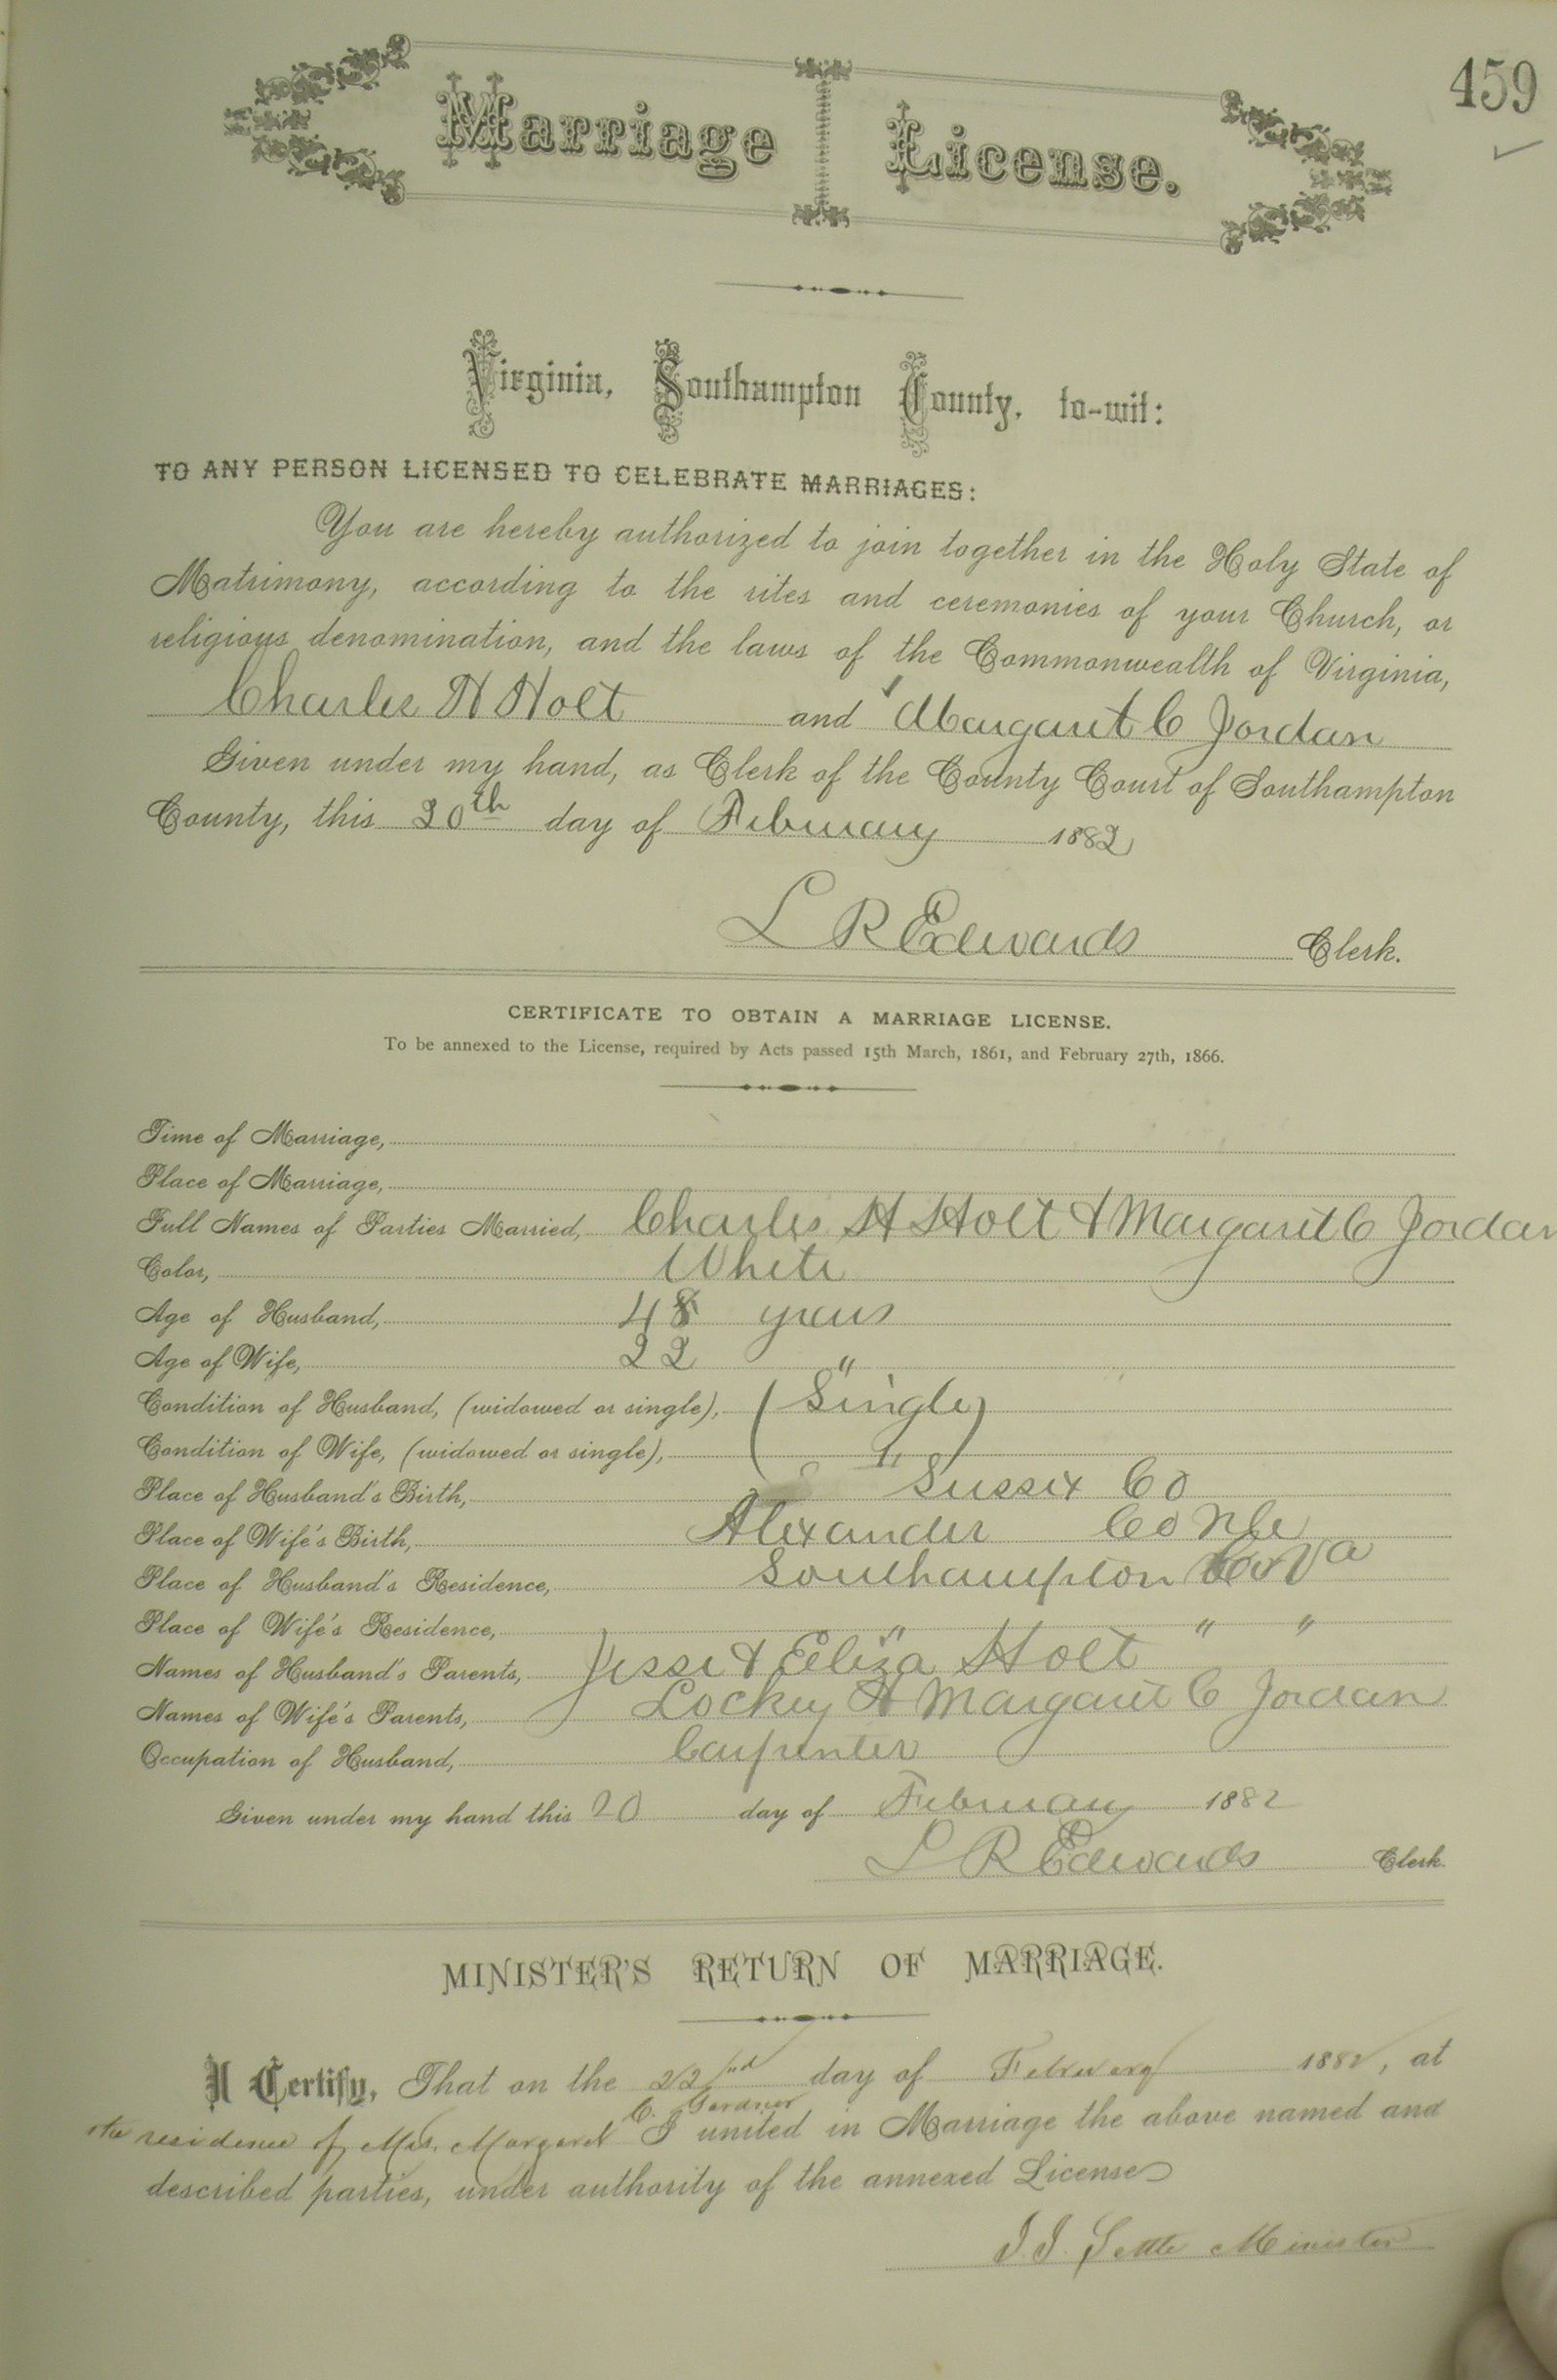 459
Marriage License.
Virginia, Southampton County, to-wit:
TO ANY PERSON LICENSED TO CELEBRATE MARRIAGES:
You are hereby authorized to join together in the Holy State of
Matrimony, according to the rites and ceremonies of your Church, or
religious denomination, and the laws of the Commonwealth of Virginia,
Charles H Holt and Margaret C Jordan
Given under my hand, as Clerk of the County Court of Southampton
County, this 20th day of February 1882
L R Edwards Clerk.
CERTIFICATE TO OBTAIN A MARRIAGE LICENSE.
To be annexed to the License, required by Acts passed 15th March, 1861, and February 27th, 1866.
Time of Marriage,
Place of Marriage,
Full Names of Parties Married, Charles H Holt & Margaret C Jordan
Color, White
Age of Husband, 48 years
Age of Wife, 22 "
Condition of Husband, (widowed or single), Single
Condition of Wife, (widowed or single), "
Place of Husband's Birth, Sussex Co
Place of Wife's Birth, Alexander Co NC
Place of Husband's Residence, Southampton Co Va
Place of Wife's Residence, " " "
Names of Husband's Parents, Jesse & Eliza Holt
Names of Wife's Parents, Margaret C Jordan
Occupation of Husband, Carpenter
Given under my hand this 20 day of February 1882
L R Edwards Clerk.
MINISTER'S RETURN OF MARRIAGE.
I Certify, That on the 22nd day of February 1882, at
the residence of Mrs. Margaret C. Gardner I united in Marriage the above named and
described parties, under authority of the annexed License
Minister